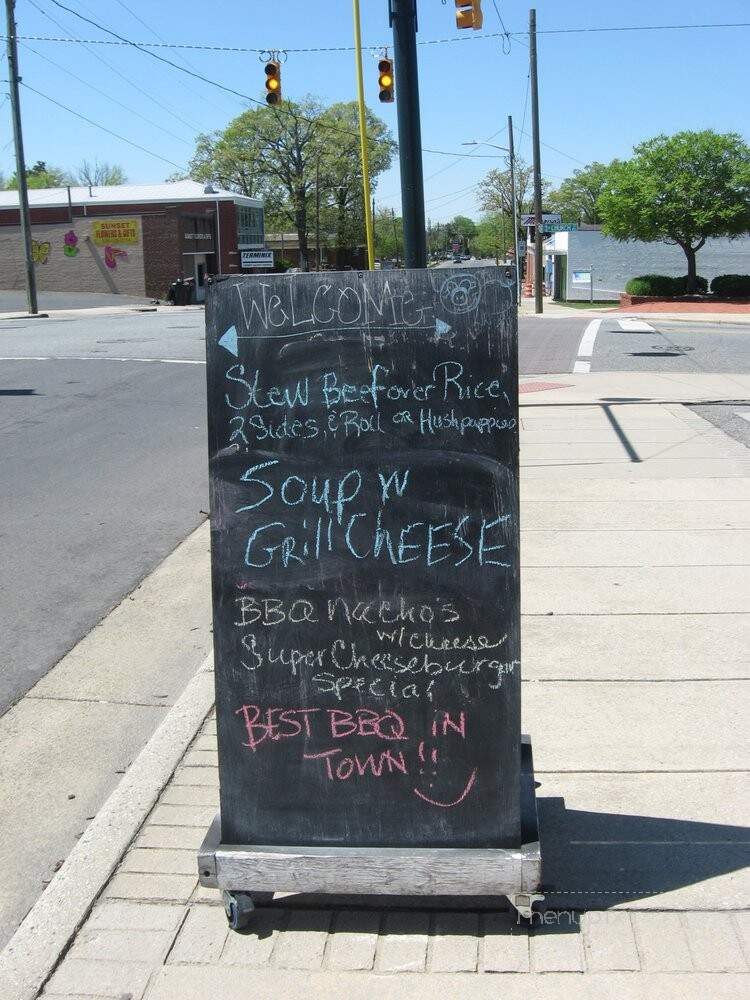 WELCOME
Stew Beef over Rice,
2 Sides, & Roll or Hushpuppies
Soup w
Grill CHEESE
BBQ Nacho's
w/cheese
Super Cheeseburger
Special
BEST BBQ IN
TOWN!!
SUNSET
FLOWERS & GIFTS
TERMINIX
CHURCH
menu